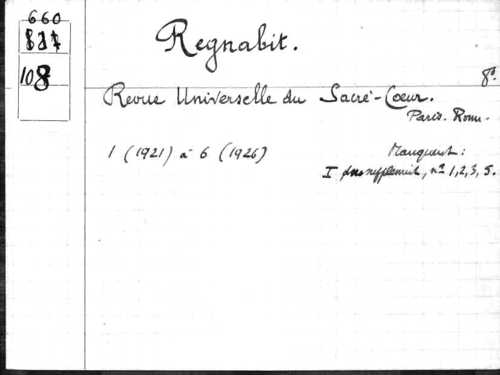 660
108
Regnabit.
8°.
Revue Universelle du Sacré-Cœur.
Paris. Rome.
1 (1921) à 6 (1926)
Manquent:
I supplément, nos 1, 2, 3, 5.